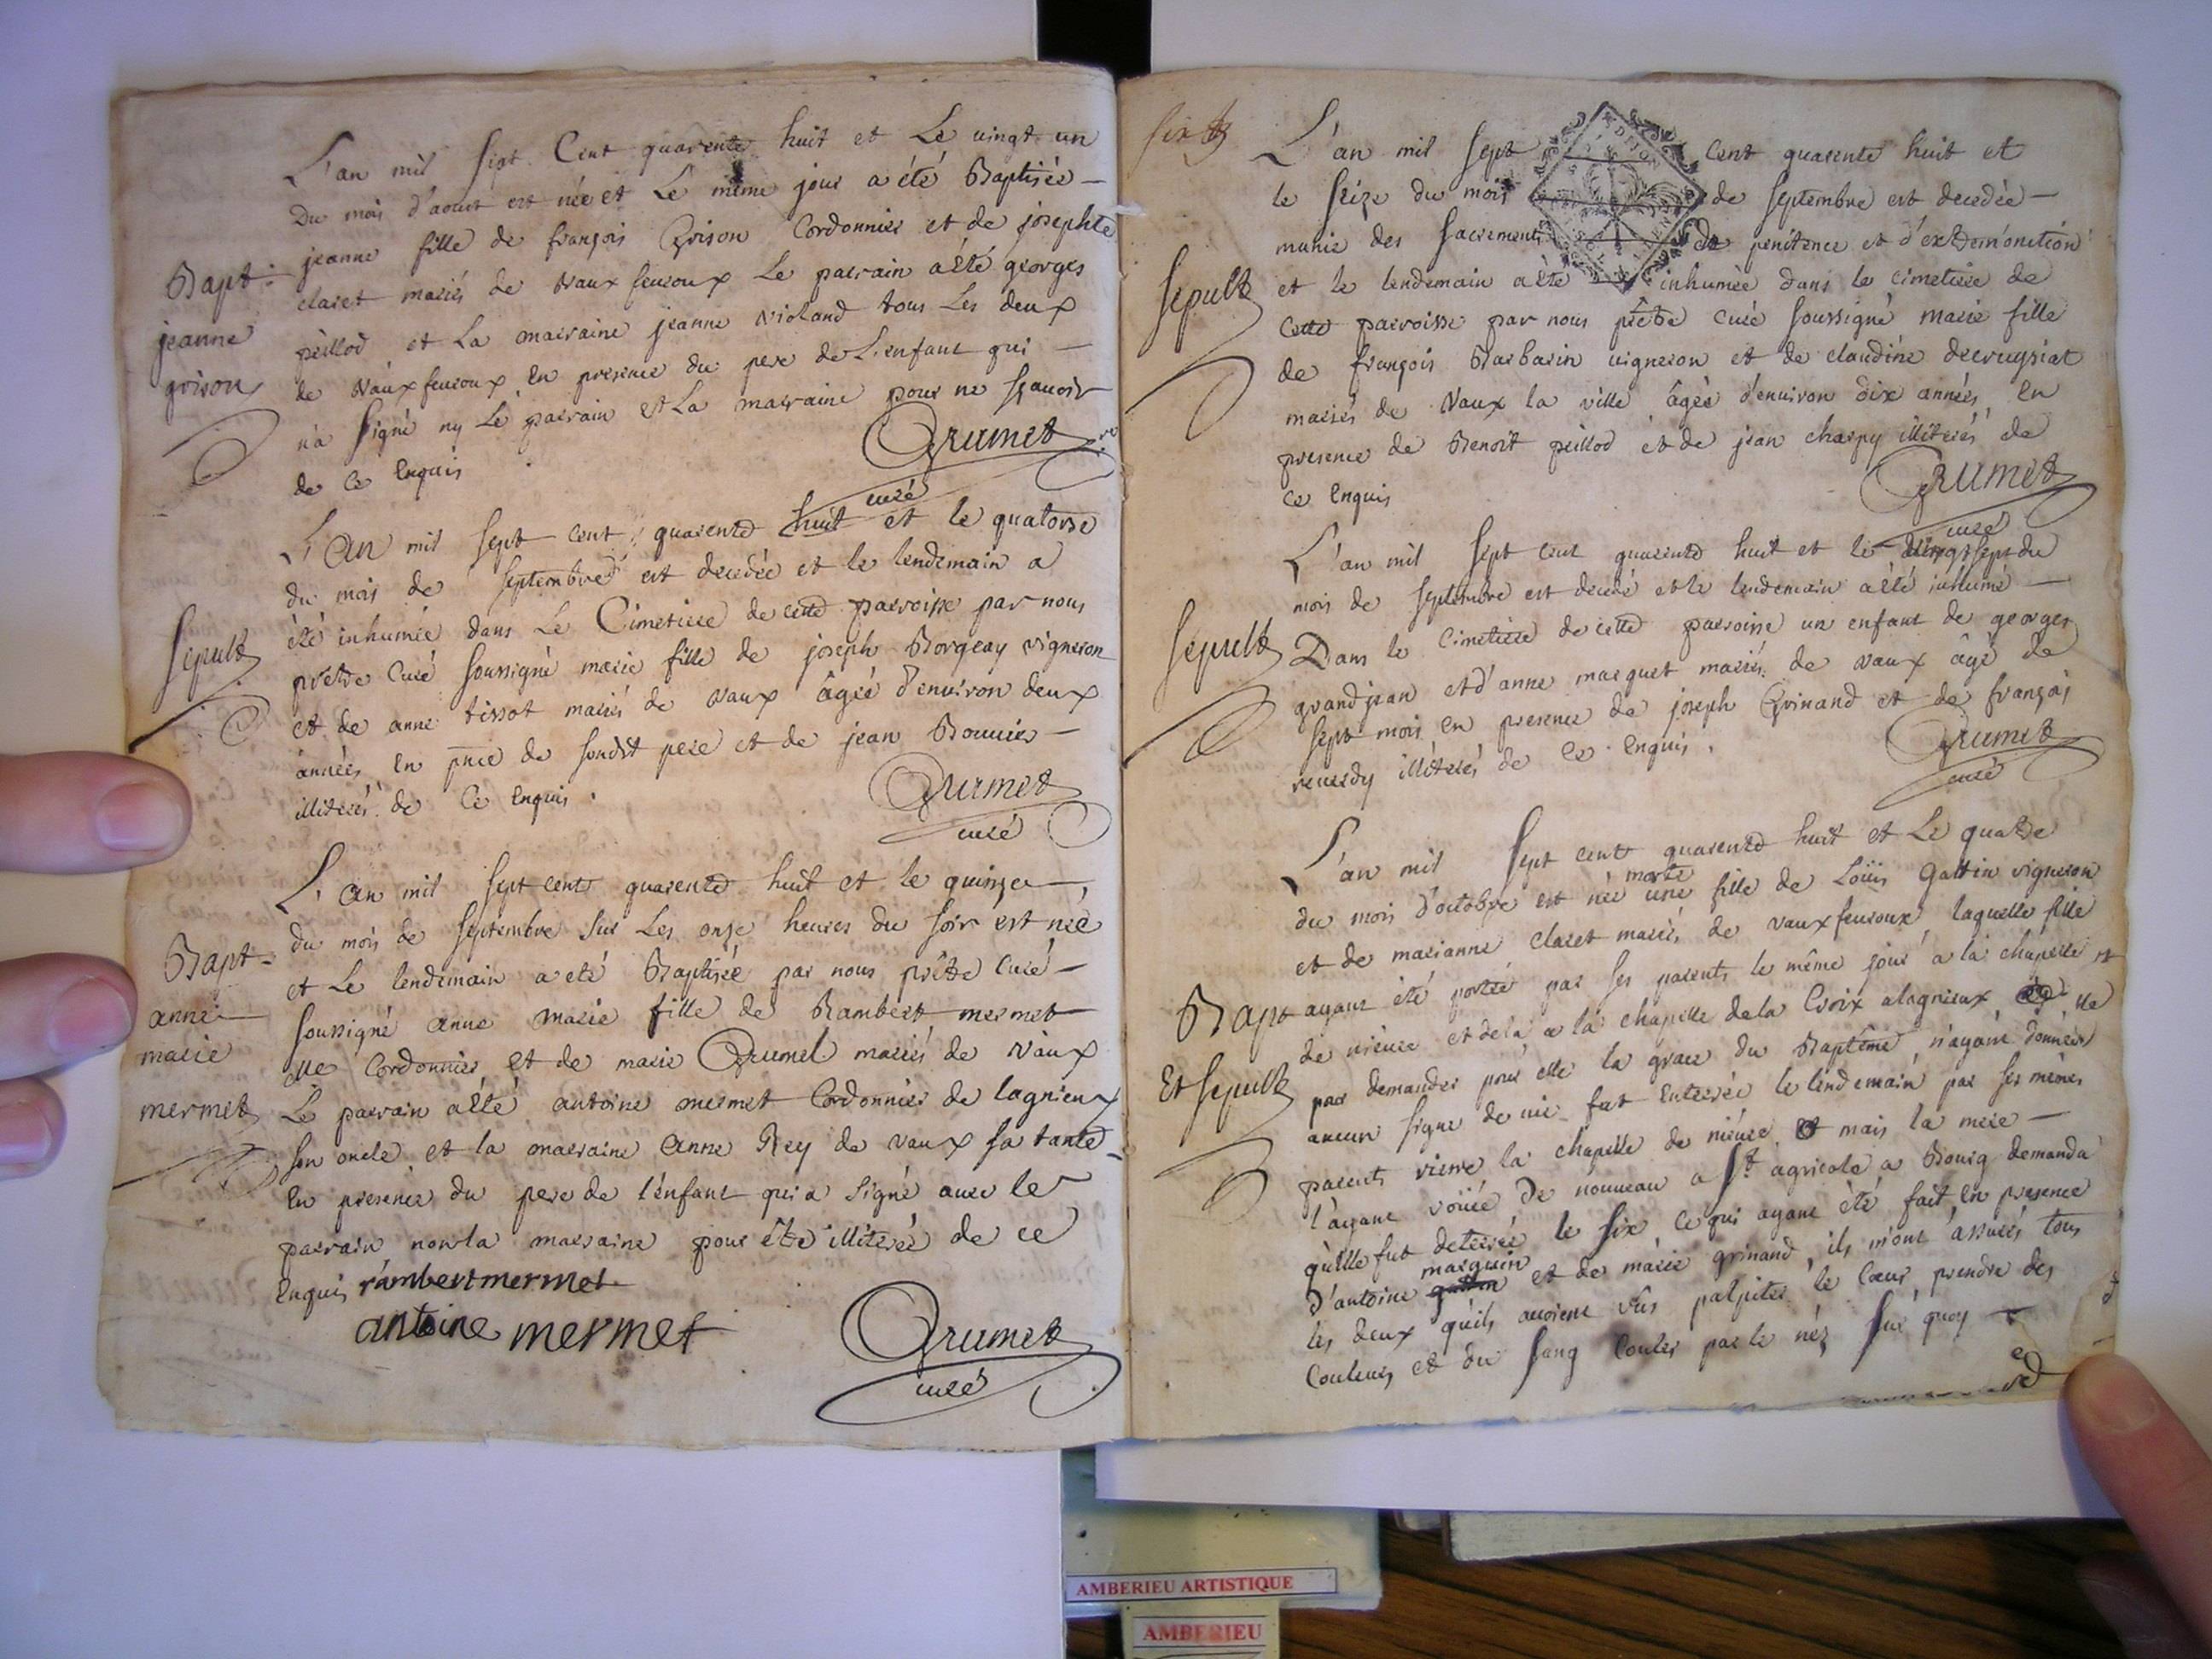 L'an mil sept Cent quarente huit et Le vingt un
Du mois d'aoust est née et Le même jour a été Baptisée -
jeanne fille de françois Grison Cordonnier et de josephte
claret mariés de Vaux fevroux Le parrain a été georges
peillod et La marraine jeanne violand tous Les deux
de Vaux fevroux En presence du pere de L'enfant qui -
n'a signé ny Le parrain et La marraine pour ne sçauoir
de ce Enquis
Bapt:
jeanne
grison
Grumet
curé
L'an mil sept cent quarente huit et le quatorse
du mois de septembre est decedée et le lendemain a
été inhumée dans Le Cimetiere de cette parroisse par nous
prêtre Curé soussigné marie fille de joseph Borgeay vigneron
et de anne tissot mariés de vaux âgée d'environ deux
années En pnce de sondit pere et de jean Bouvier -
illiterés de Ce Enquis.
sepult
Grumet
curé
L'an mil sept cent quarente huit et le quinze -
du mois de septembre sur Les onze heures du soir est née
et Le lendemain a eté Baptisée par nous prêtre Curé -
soussigné anne marie fille de Rambert mermet
Me Cordonnier et de marie Grumel mariés de Vaux
Le parrain a été antoine mermet Cordonnier de lagnieux
son oncle et la marraine Anne Rey de vaux sa tante -
En presence du pere de l'enfant qui a signé avec le
parrain non la marraine pour être illiterée de ce
Enquis rambert mermet
antoine mermet
Bapt-
anne
marie
mermet
Grumet
curé
six
L'an mil sept cent quarente huit et
le seize du mois de septembre est decedée -
munie des sacrements de penitence et d'extremonction
et le lendemain a été inhumée dans le cimetiere de
Cette parroisse par nous prêtre curé soussigné marie fille
de françois Barbarin vigneron et de claudine decruysiat
mariés de Vaux la ville âgée d'environ dix années, En
presence de Benoit peillod et de jean charpy illiterés de
ce Enquis
sepult
Grumet
curé
L'an mil sept cent quarente huit et le vingt sept du
mois de septembre est decedé et le lendemain a été inhumé -
Dans le Cimetiere de cette parroisse un enfant de georges
grandjean et d'anne marguet mariés de vaux âgé de
sept mois En presence de joseph Grinand et de françois
reverdy illiterés de ce Enquis.
sepult
Grumet
curé
L'an mil sept cent quarente huit et Le quatre
du mois d'octobre est née morte une fille de Loüis Gattin vigneron
et de marianne claret mariés de vaux fevroux, laquelle fille
ayant été portée par ses parents le même jour a la chapelle
de nieure et de la a la chapelle de la Croix a lagnieux
par demander pour elle la grace du Baptême n'ayant donnée
aucun signe de vie fut Enterrée le lendemain par ses mêmes
parents vierre la chapelle de nieure mais la mere -
l'ayant voüée De nouveau a St. agricole a Bourg demanda
qu'elle fut deterrée le six ce qui ayant été fait En presence
D'antoine marguin et de marie grinand, ils m'ont assurés tous
les deux qu'ils auoient vûs palpiter le Coeur, prendre des
Couleurs et du sang Couler par le néz sur quoy
Bapt
Et sepult
AMBERIEU ARTISTIQUE
AMBERIEU